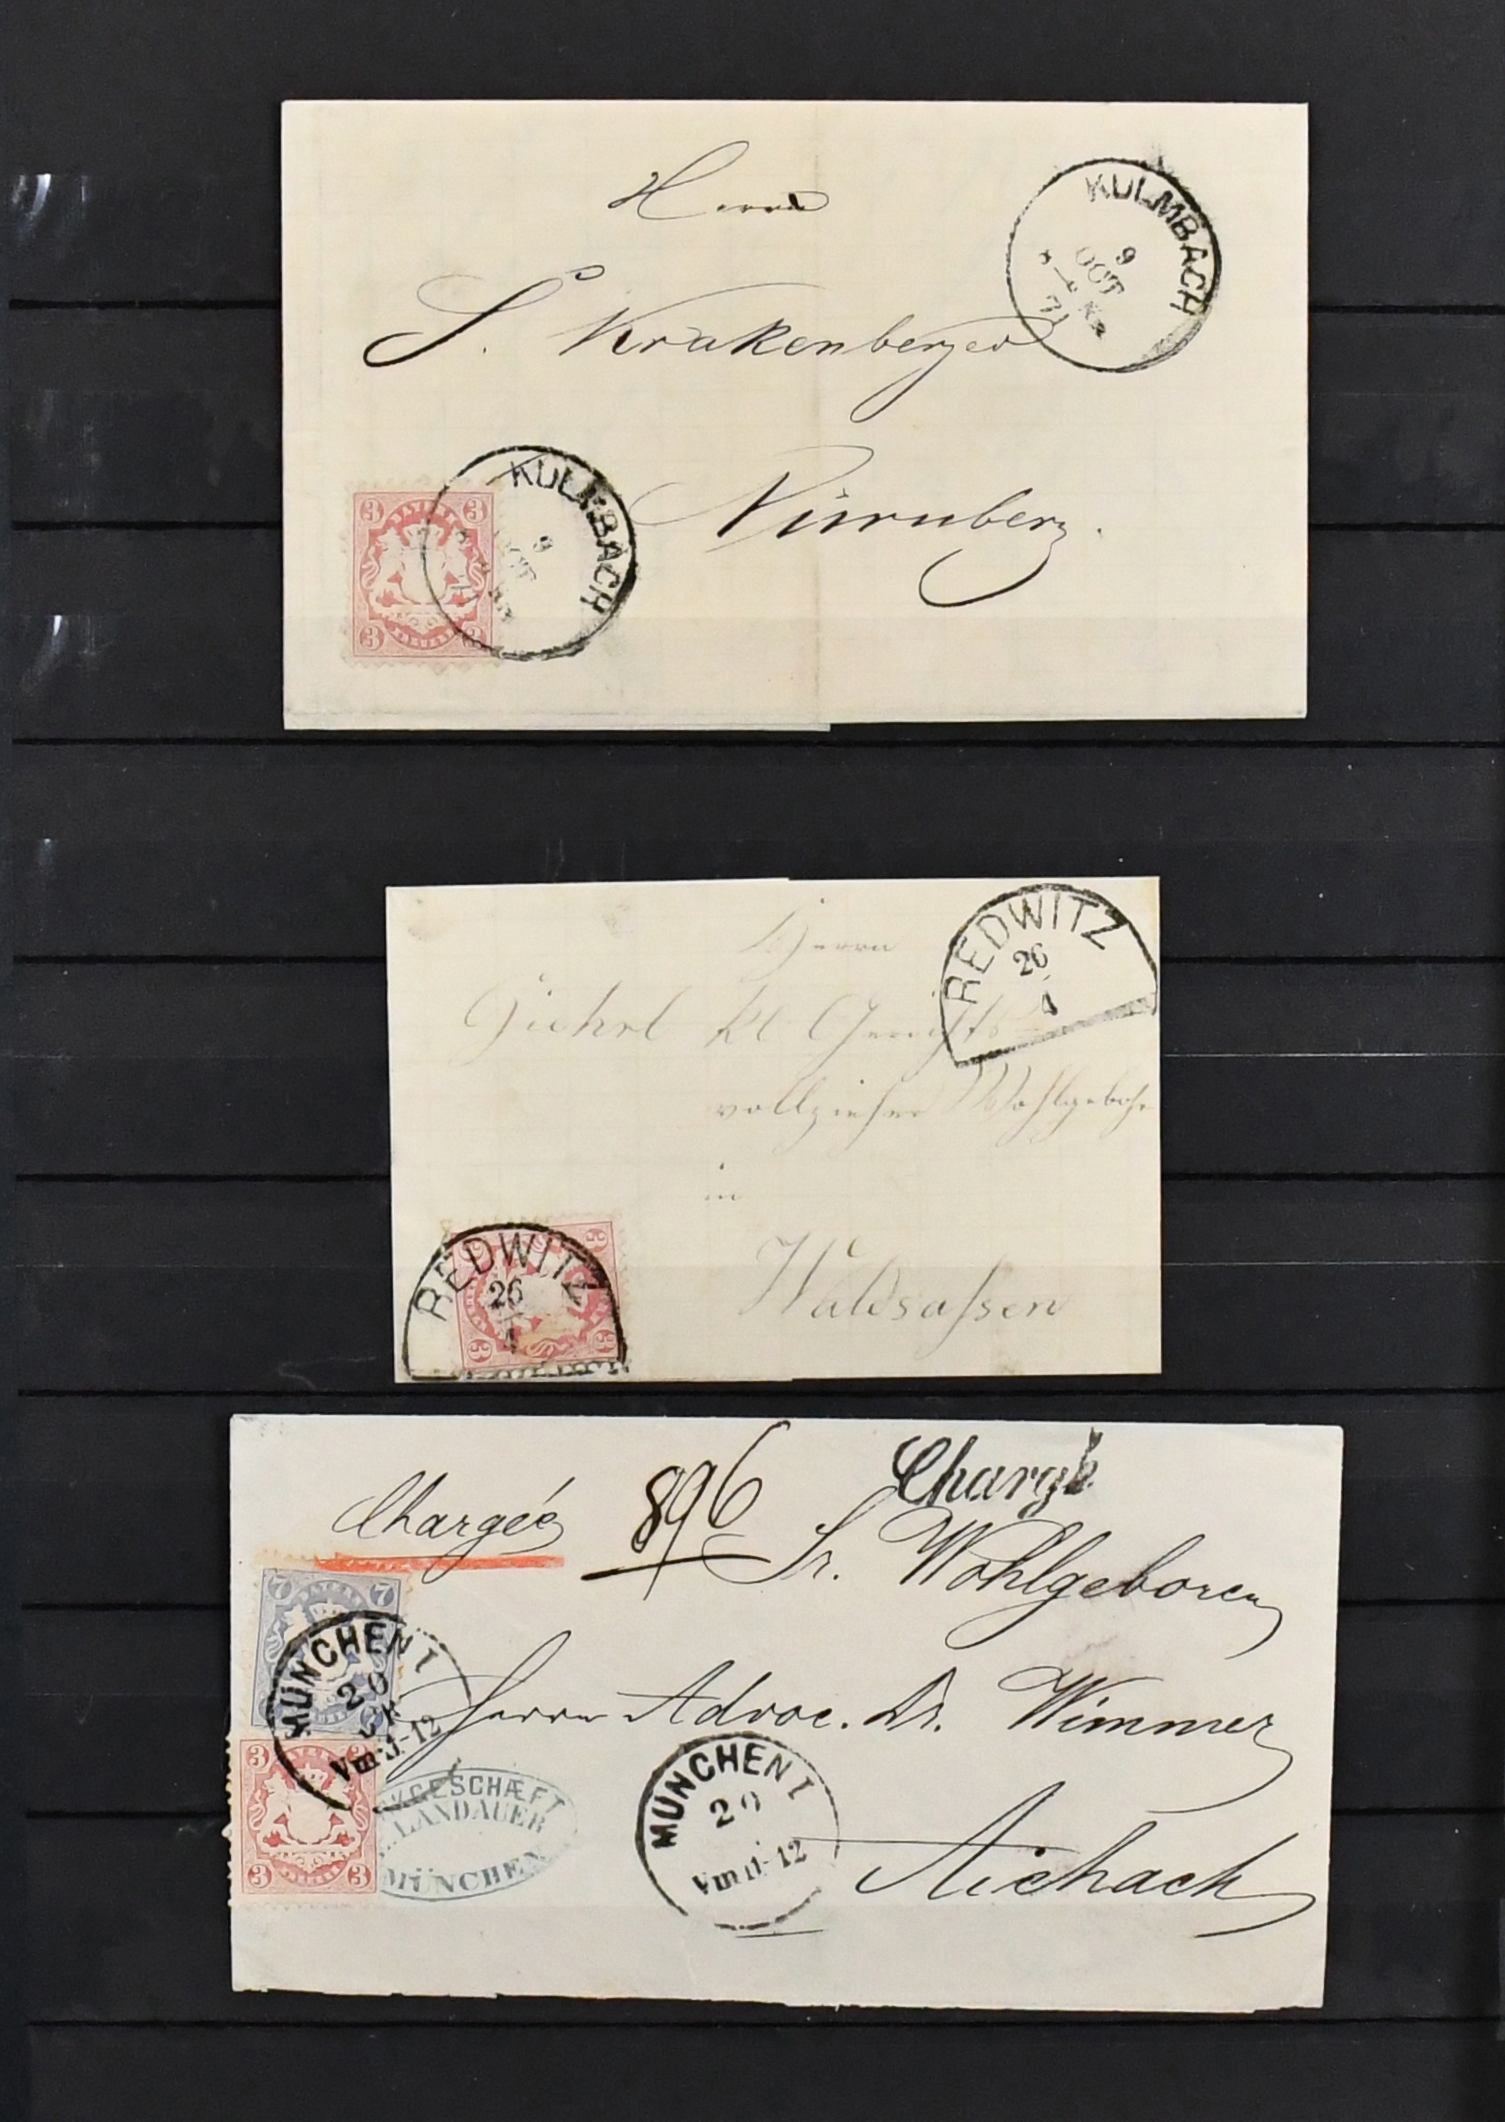 Herrn
KULMBACH
9
OCT
71
S. Krakenberger
Nürnberg.
KULMBACH
9
OCT
71
3 BAYERN 3
3 KREUZER 3
Herrn
REDWITZ
26
4
Giehrl kl. Gerichts
vollzieher Wohlgebohr
in
Waldsassen
REDWITZ
26
4
3 3
3 3
Chargée 896 Chargé.
Sr. Wohlgeboren
7 BAYERN 7
MÜNCHEN I
20
Vm 11-12
Herrn Advoc. Dr. Wimmer
3 BAYERN 3
3 KREUZER 3
ZGESCHÆFT
LANDAUER
MÜNCHEN
MÜNCHEN I
20
Vm 11-12
Aichach